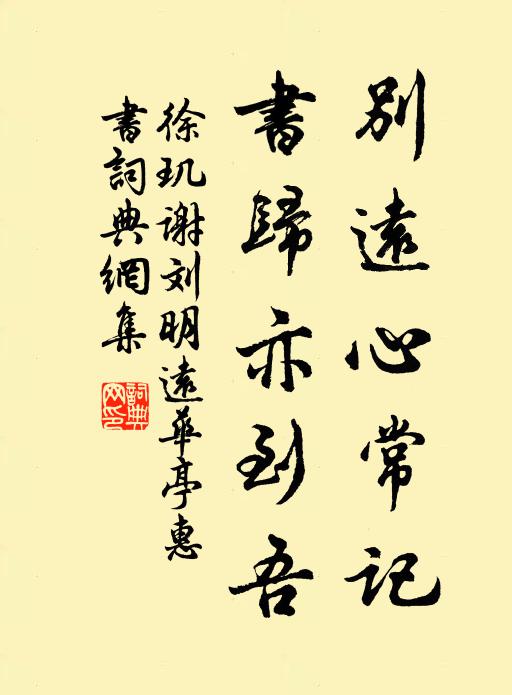 別遠心常記
書歸亦到吾
徐玑谢刘明遠華亭惠
書詞典網集
詞典
网印